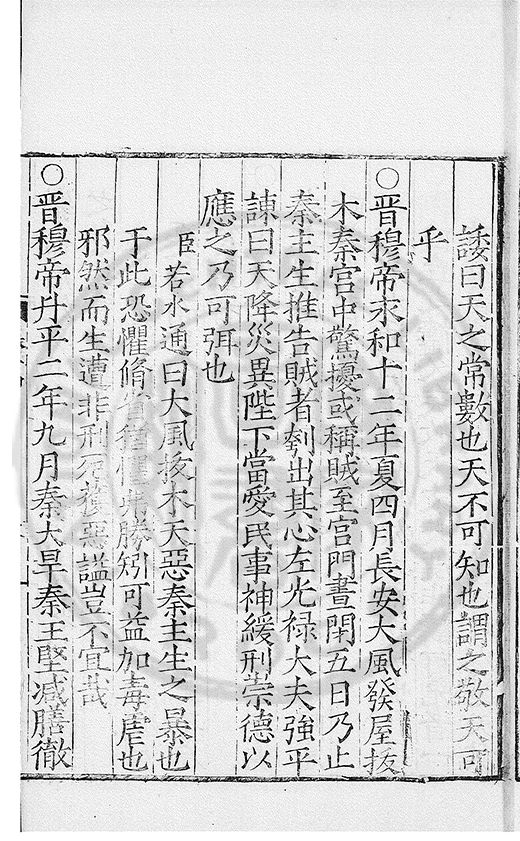 諉曰天之常數也天不可知也謂之敬天可
乎
○晋穆帝永和十二年夏四月長安大風發屋拔
木秦宫中驚擾或稱賊至宫門晝閉五日乃止
秦主生推告賊者刳出其心左光禄大夫強平
諌曰天降災異陛下當愛民事神緩刑崇德以
應之乃可弭也
臣若水通曰大風拔木天惡秦主生之暴也
于此恐懼脩省猶懼弗勝矧可益加毒虐也
邪然而生遭非刑死獲惡謚豈不宜哉
○晋穆帝升平二年九月秦大旱秦王堅减膳徹